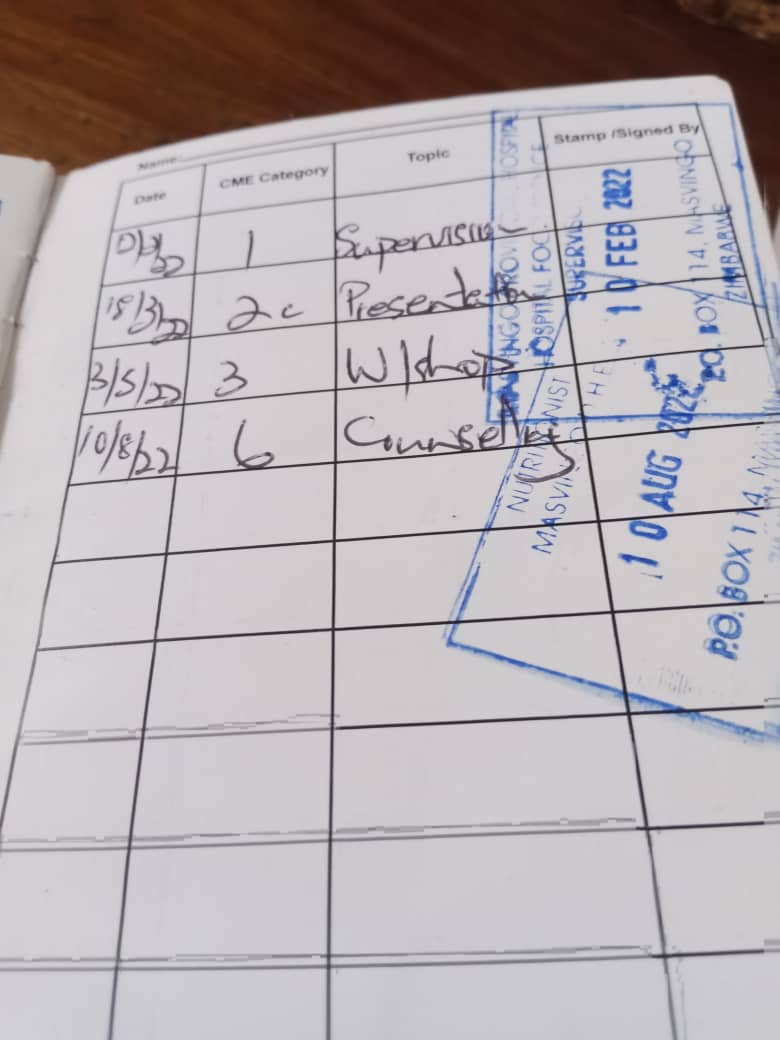 Name
Date CME Category Topic Stamp /Signed By
1 Supervision
18/3/22 2c Presentation
3/5/22 3 W/shop
10/8/22 6 Counselling
HOSPITAL
SUPERVISOR
10 FEB 2022
P.O. BOX 114, MASVINGO
ZIMBABWE
NUTRITIONIST
10 AUG 2022
P.O. BOX 114,